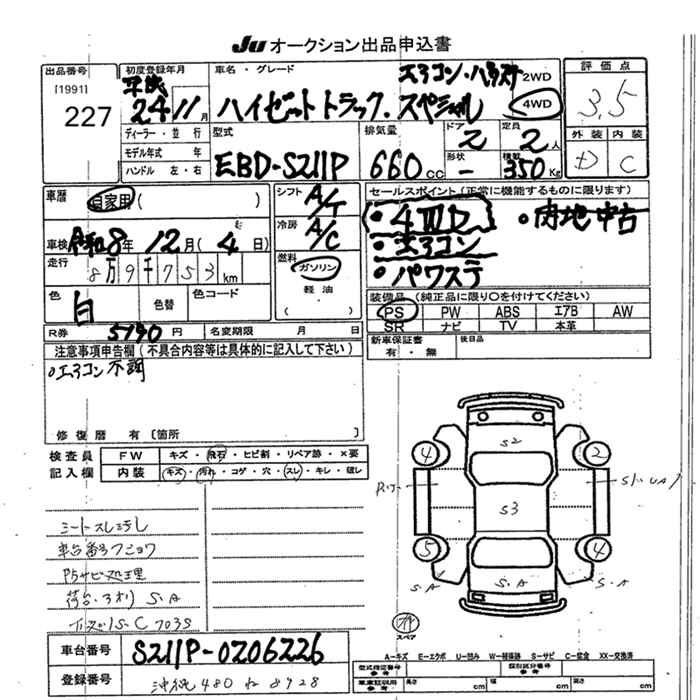 Ju オークション出品申込書
出品番号
[1991]
227
初度登録年月
平成
24 11月
ディーラー・並行
モデル年式 年
ハンドル 左・右
車名・グレード
エアコン・ハウス
2WD
4WD
ハイゼットトラック.スペシャル
型式
EBD-S211P
排気量
660cc
ドア
2
形状
-
定員
2人
積載
350Kg
評価点
3.5
外装 内装
D C
車歴
自家用(
)
車検 令和8年 12月( 4日)
走行
8万9千753km
色
白
色替
色コード
R券 5190円
名変期限 月 日
シフト
A/T
冷房
A/C
燃料
ガソリン
軽油
( )
セールスポイント(正常に機能するものに限ります)
・4WD
・内地中古
・エアコン
・パワステ
装備品(純正品に限り〇を付けてください)
PS PW ABS エアB AW
SR ナビ TV 本革
新車保証書
有・無
後日品
注意事項申告欄(不具合内容等は具体的に記入して下さい)
・エアコン不調
修復歴 有 〔箇所
検査員
記入欄
FW キズ・飛石・ヒビ割・リペア跡・×要
内装 キズ・汚れ・コゲ・穴・スレ・キレ・破レ
シートスレ汚し
車台番号フショク
防サビ処理
荷台・アオリ S.A
S.C
S2
S3
4
2
5
4
S.A
S.A
S.A
S.A
スペア
A=キズ E=エクボ U=凹み W=補修跡 S=サビ C=腐食 XX=交換済
車台番号
S211P-0206226
登録番号
沖縄480 ね 8928
型式指定番号
参考
類別区分番号
参考
車庫証明用
参考
長さ cm
幅 cm
高さ cm